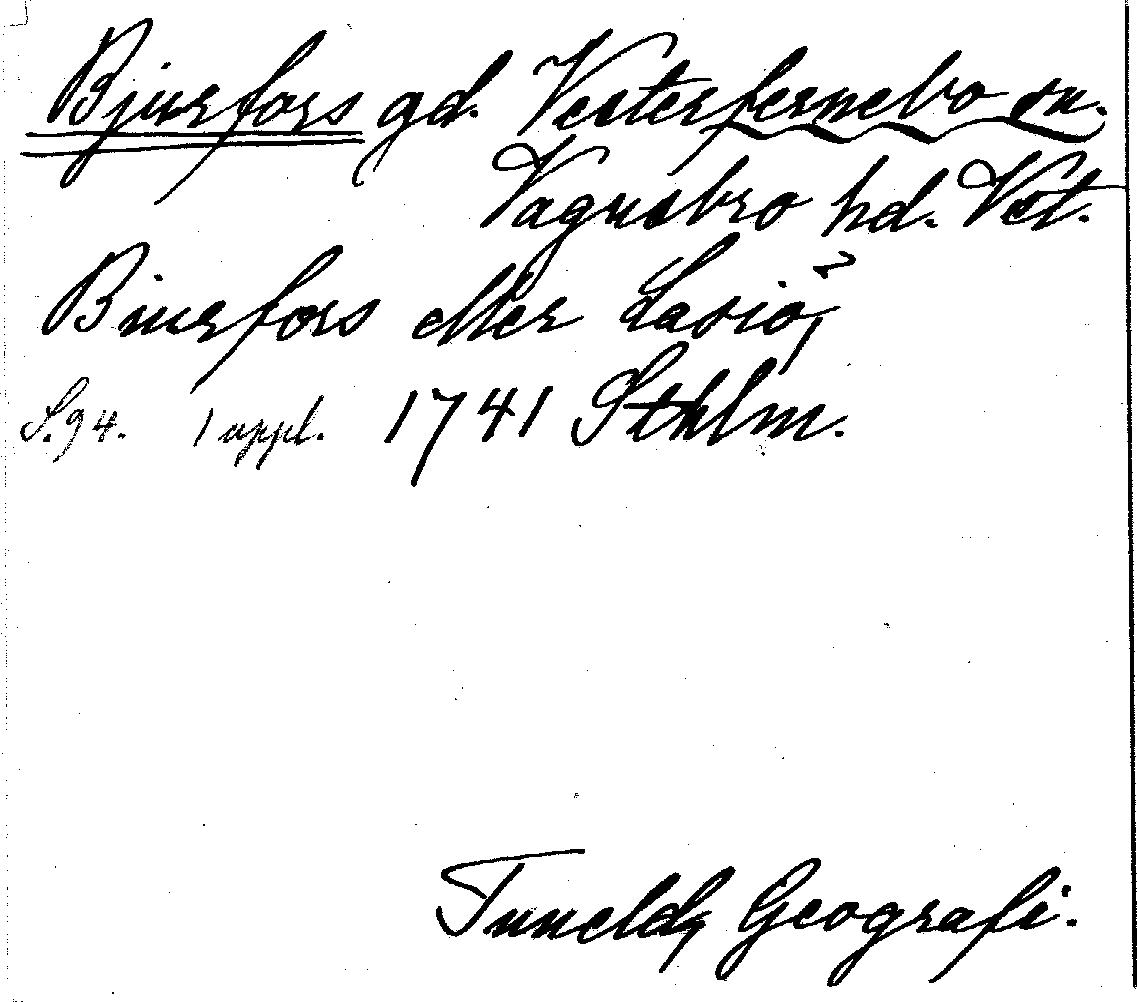 Bjurfors gd. Vesterfernebo sn.
Vagnsbro hd. Vst.
Biurfors eller Lasiö,
S. 94. 1 uppl. 1741 Sthlm.
Tunelds Geografi.